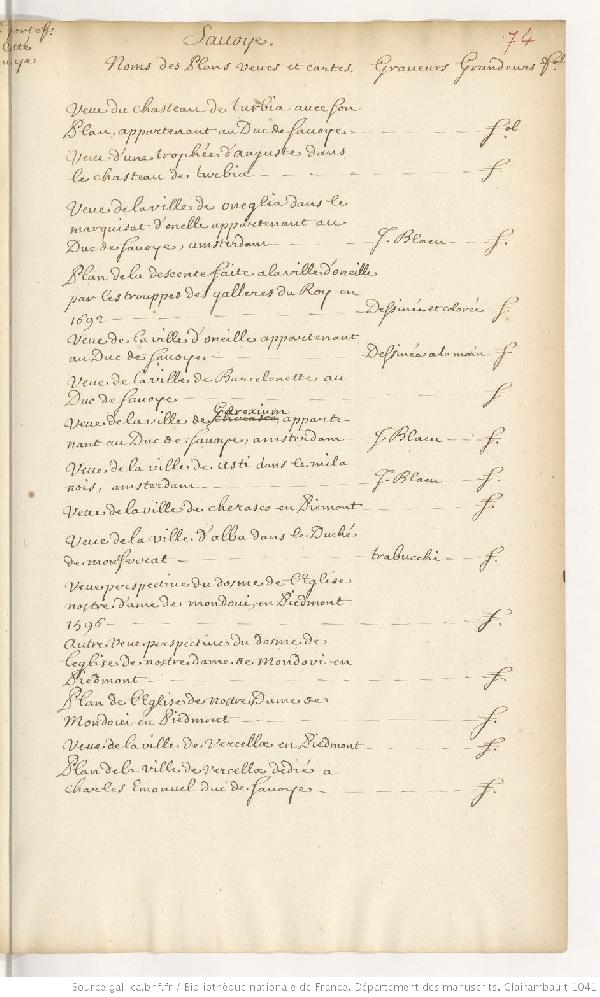 Savoye.
74
Noms des Plans veues et cartes. Graveurs Grandeurs
Veue du chasteau de turbia avec son
Plan, appartenant au Duc de Savoye - - - - fol
Veue d'une trophée d'auguste dans
le chasteau de turbia - - - - f
Veue de la ville de oneglia dans le
marquisat d'onelle appartenant au
Duc de Savoye, amsterdam - - J. Blaeu - - f.
Plan de la descente faite a la ville d'oneille
par les trouppes des galleres du Roy en
1692 - - - - Dessinée et colorée f.
Veue de la ville d'oneille appartenant
au Duc de Savoye - - - Dessinée a la main - f
Veue de la ville de Barcelonette au
Duc de Savoye - - - - f
Veue de la ville de Cherasco apparte-
nant au Duc de Savoye, amsterdam - J. Blaeu - - f.
Veue de la ville de Asti dans le mila
nois, amsterdam - - - J. Blaeu - - f.
Veue de la ville de cherasco en Piemont - - - f.
Veue de la ville d'alba dans le Duché
de monferrat - - - trabucchi - - f.
Veue perspective du dosme de l'Eglise
nostre dame de mondovi, en Piedmont
1596 - - - - f.
Autre veue perspective du dosme de
l'eglise de nostre dame de Mondovi en
Piedmont - - - - f.
Plan de l'Eglise de nostre Dame de
Mondovi en Piedmont - - - - f.
Veue de la ville de Vercellæ en Piedmont - - - f.
Plan de la ville de vercellæ dedié a
Charles Emanuel duc de Savoye - - - - f.
Source gallica.bnf.fr / Bibliothèque nationale de France. Département des manuscrits. Clairambault 1041